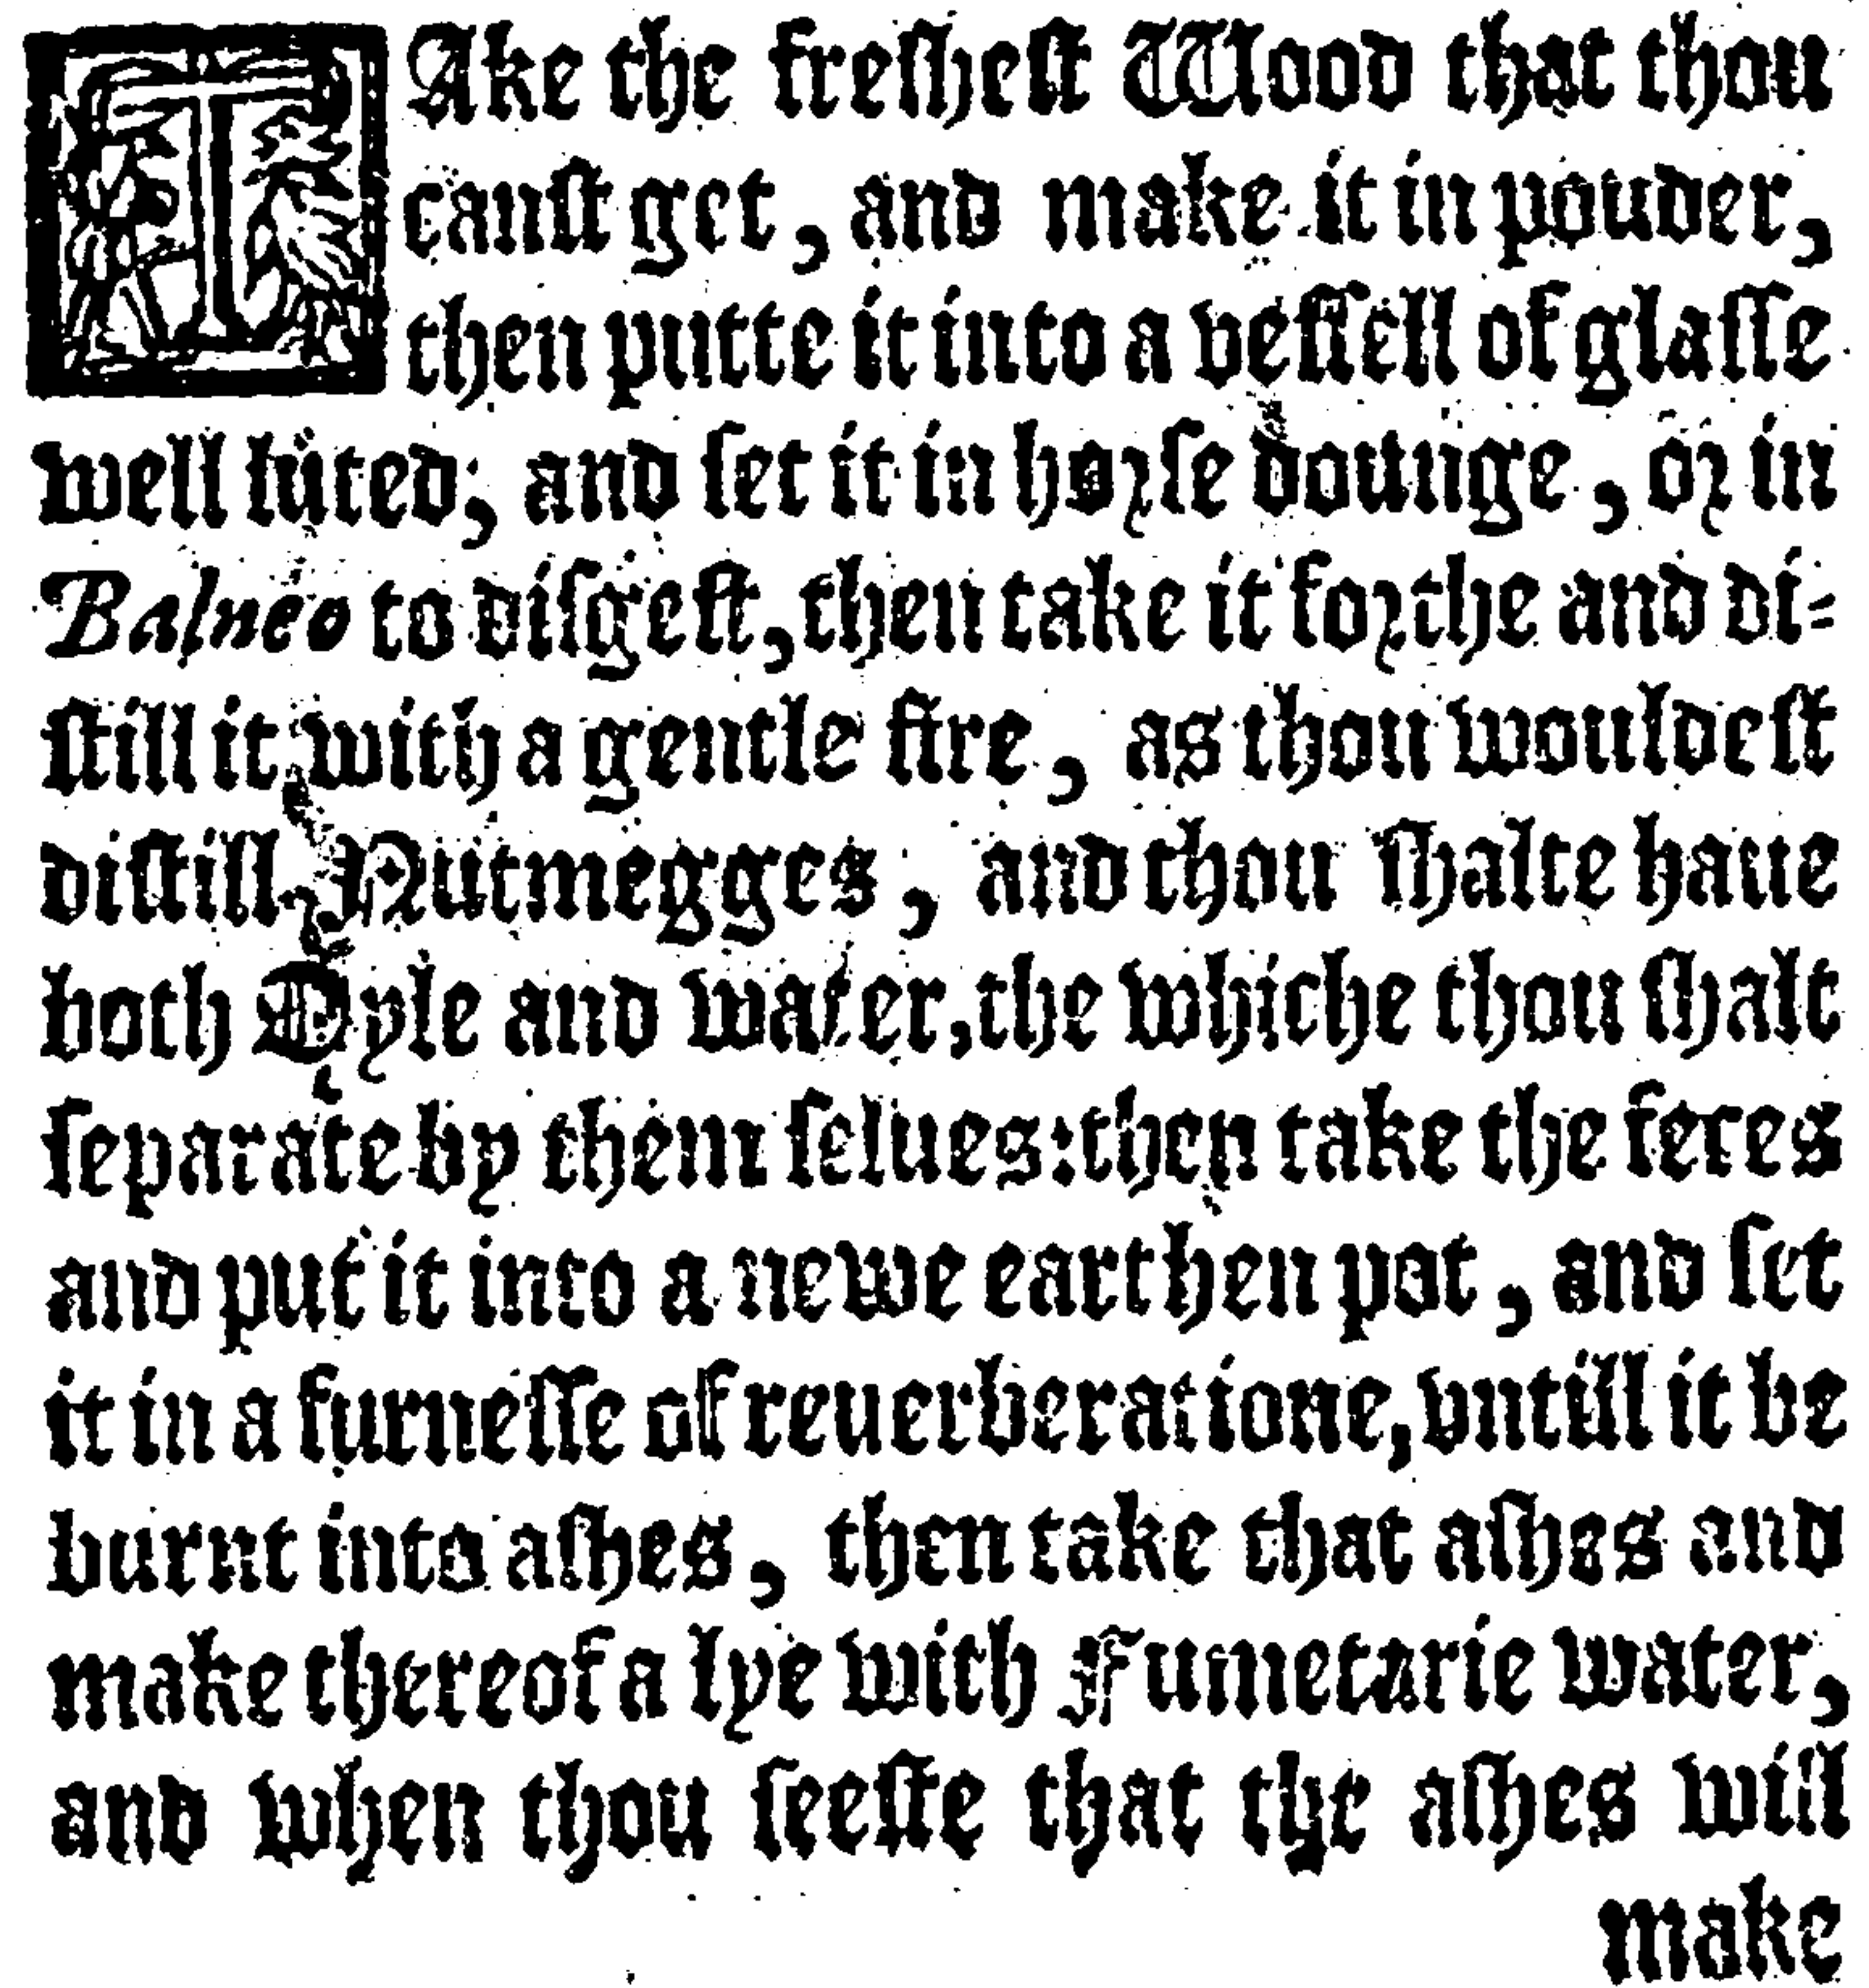 TAke the freſheſt Wood that thou
canſt get, and make it in pouder,
then putte it into a veſſell of glaſſe
well luted; and ſet it in horſe dounge, or in
Balneo to diſgeſt, then take it forthe and di-
ſtill it with a gentle fire, as thou wouldeſt
diſtill Nutmegges, and thou ſhalte haue
both Oyle and water, the whiche thou ſhalt
ſeparate by them ſelues: then take the feces
and put it into a newe earthen pot, and ſet
it in a furneſſe of reuerberatione, vntill it be
burnt into aſhes, then take that aſhes and
make thereof a lye with Fumetarie water,
and when thou ſeeſte that the aſhes will
make